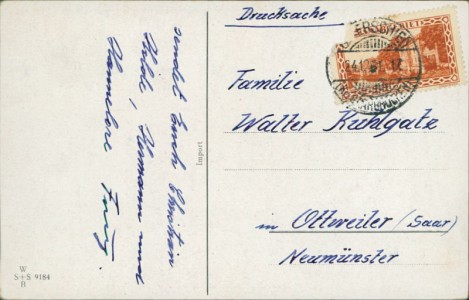 Drucksache
Familie
Walter Kuhlgatz
in Ottweiler (Saar)
Neumünster
sendet Euch Christian
Hilde, Hermann und
Hannelore
Import
W
S+S 9184
B